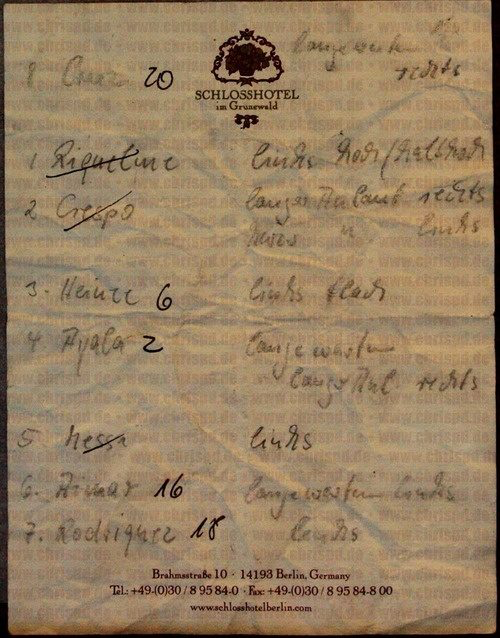 lange warten
20
rechts
SCHLOSSHOTEL
im Grunewald
1 Riquelme links hoch/halbhoch
2 Crespo langer Anlauf rechts
kurz " links
3. Heinze 6 links flach
4 Ayala 2 lange warten
langer Anl rechts
5 links
6. Aimar 16 lange warten links
7. Rodriguez 18 links
Brahmsstraße 10 · 14193 Berlin, Germany
Tel.: +49-(0)30 / 8 95 84-0 · Fax: +49-(0)30 / 8 95 84-8 00
www.schlosshotelberlin.com